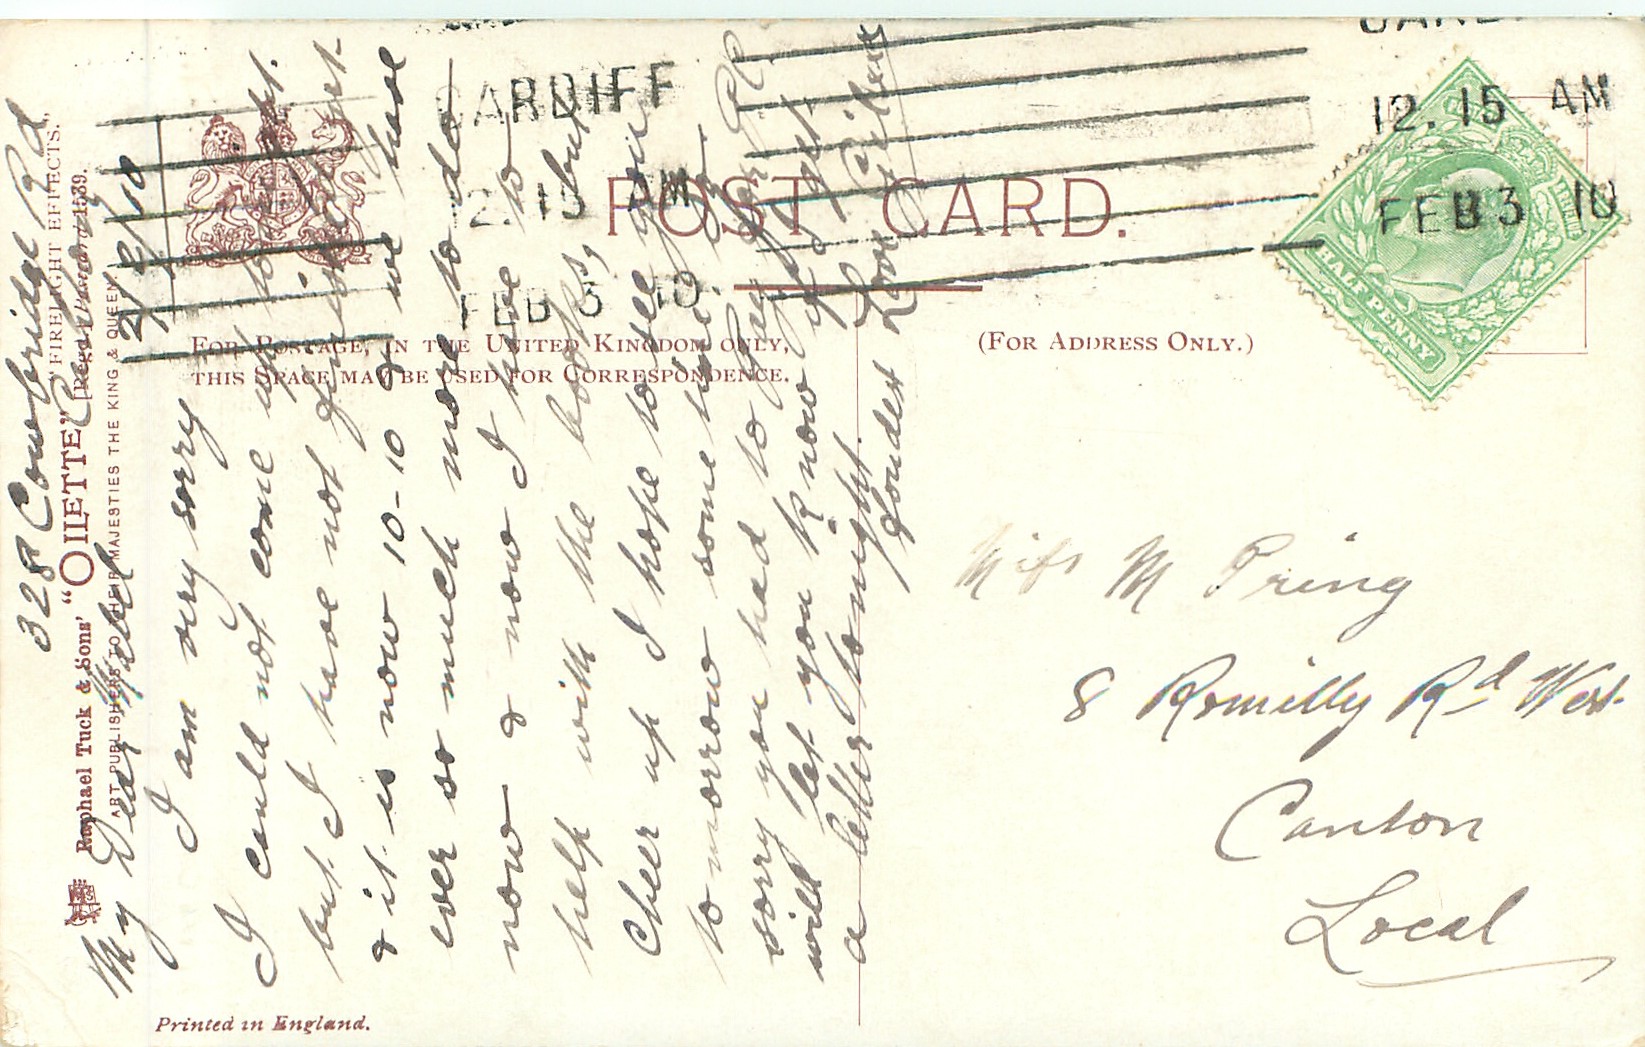 328 Cowbridge Rd
Canton
2/2/10
My Dear Mabel
I am very sorry
I could not come up to night.
but I have not finished yet.
& it is now 10-10 & we have
ever so much more to do
now & now I have to
help with the books, but
Cheer up I hope to see you
to morrow some time
sorry you had to pay on Pl
will let you know if I get
a letter to night.
Fondest Love
Raphael Tuck & Sons' "OILETTE" [Regd.
"FIRELIGHT EFFECTS."
ART PUBLISHERS TO THEIR MAJESTIES THE KING & QUEEN
POST CARD.
FOR POSTAGE, IN THE UNITED KINGDOM ONLY,
THIS SPACE MAY BE USED FOR CORRESPONDENCE.
(FOR ADDRESS ONLY.)
CARDIFF
12.15 AM
FEB 3 10
CARD
12.15 AM
FEB 3 10
HALF PENNY
Miss M Pring
8 Romilly Rd West
Canton
Local
Printed in England.